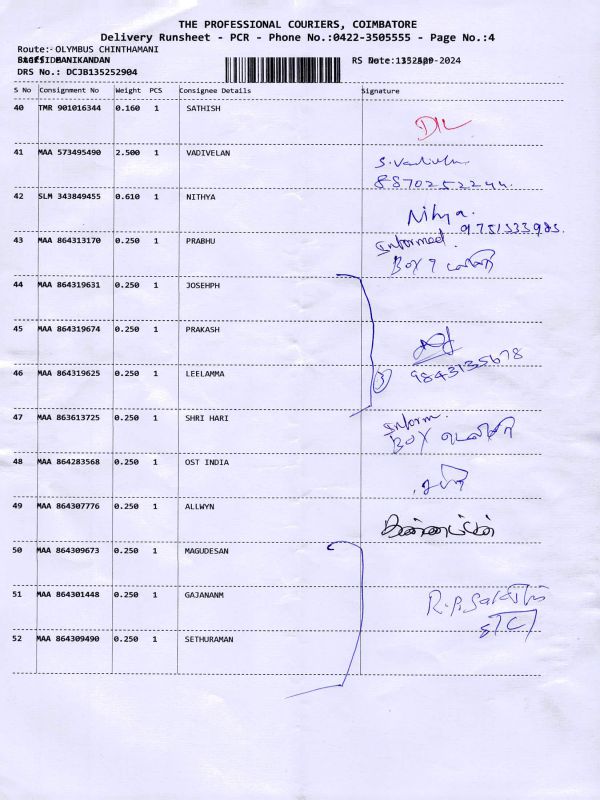 THE PROFESSIONAL COURIERS, COIMBATORE
Delivery Runsheet - PCR - Phone No.:0422-3505555 - Page No.:4
Route:- OLYMBUS CHINTHAMANI
MANIKANDAN
DRS No.: DCJB135252904
S No Consignment No Weight PCS Consignee Details Signature
40 TMR 901016344 0.160 1 SATHISH
41 MAA 573495490 2.500 1 VADIVELAN
S. Vadivelu
8870252244.
42 SLM 343849455 0.610 1 NITHYA
Nithya.
43 MAA 864313170 0.250 1 PRABHU
Informed.
BOX
44 MAA 864319631 0.250 1 JOSEHPH
45 MAA 864319674 0.250 1 PRAKASH
9843135678
46 MAA 864319625 0.250 1 LEELAMMA
3
47 MAA 863613725 0.250 1 SHRI HARI
Inform.
BOX
48 MAA 864283568 0.250 1 OST INDIA
49 MAA 864307776 0.250 1 ALLWYN
50 MAA 864309673 0.250 1 MAGUDESAN
51 MAA 864301448 0.250 1 GAJANANM
52 MAA 864309490 0.250 1 SETHURAMAN